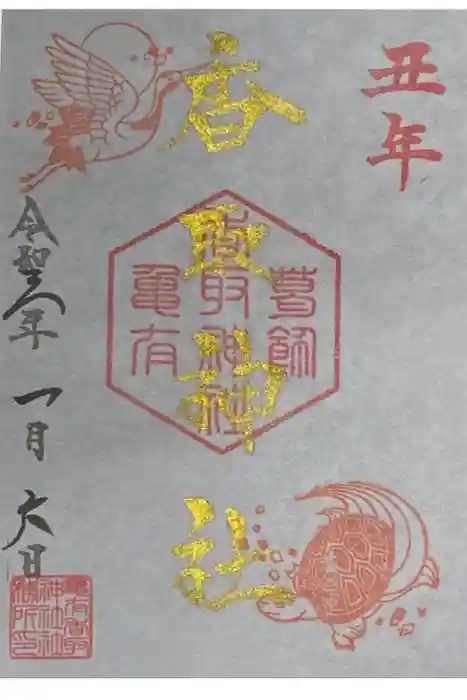 丑年
香取神社
葛飾
香取神社
亀有
令和三年 一月六日
亀有香取
神社社
務所印